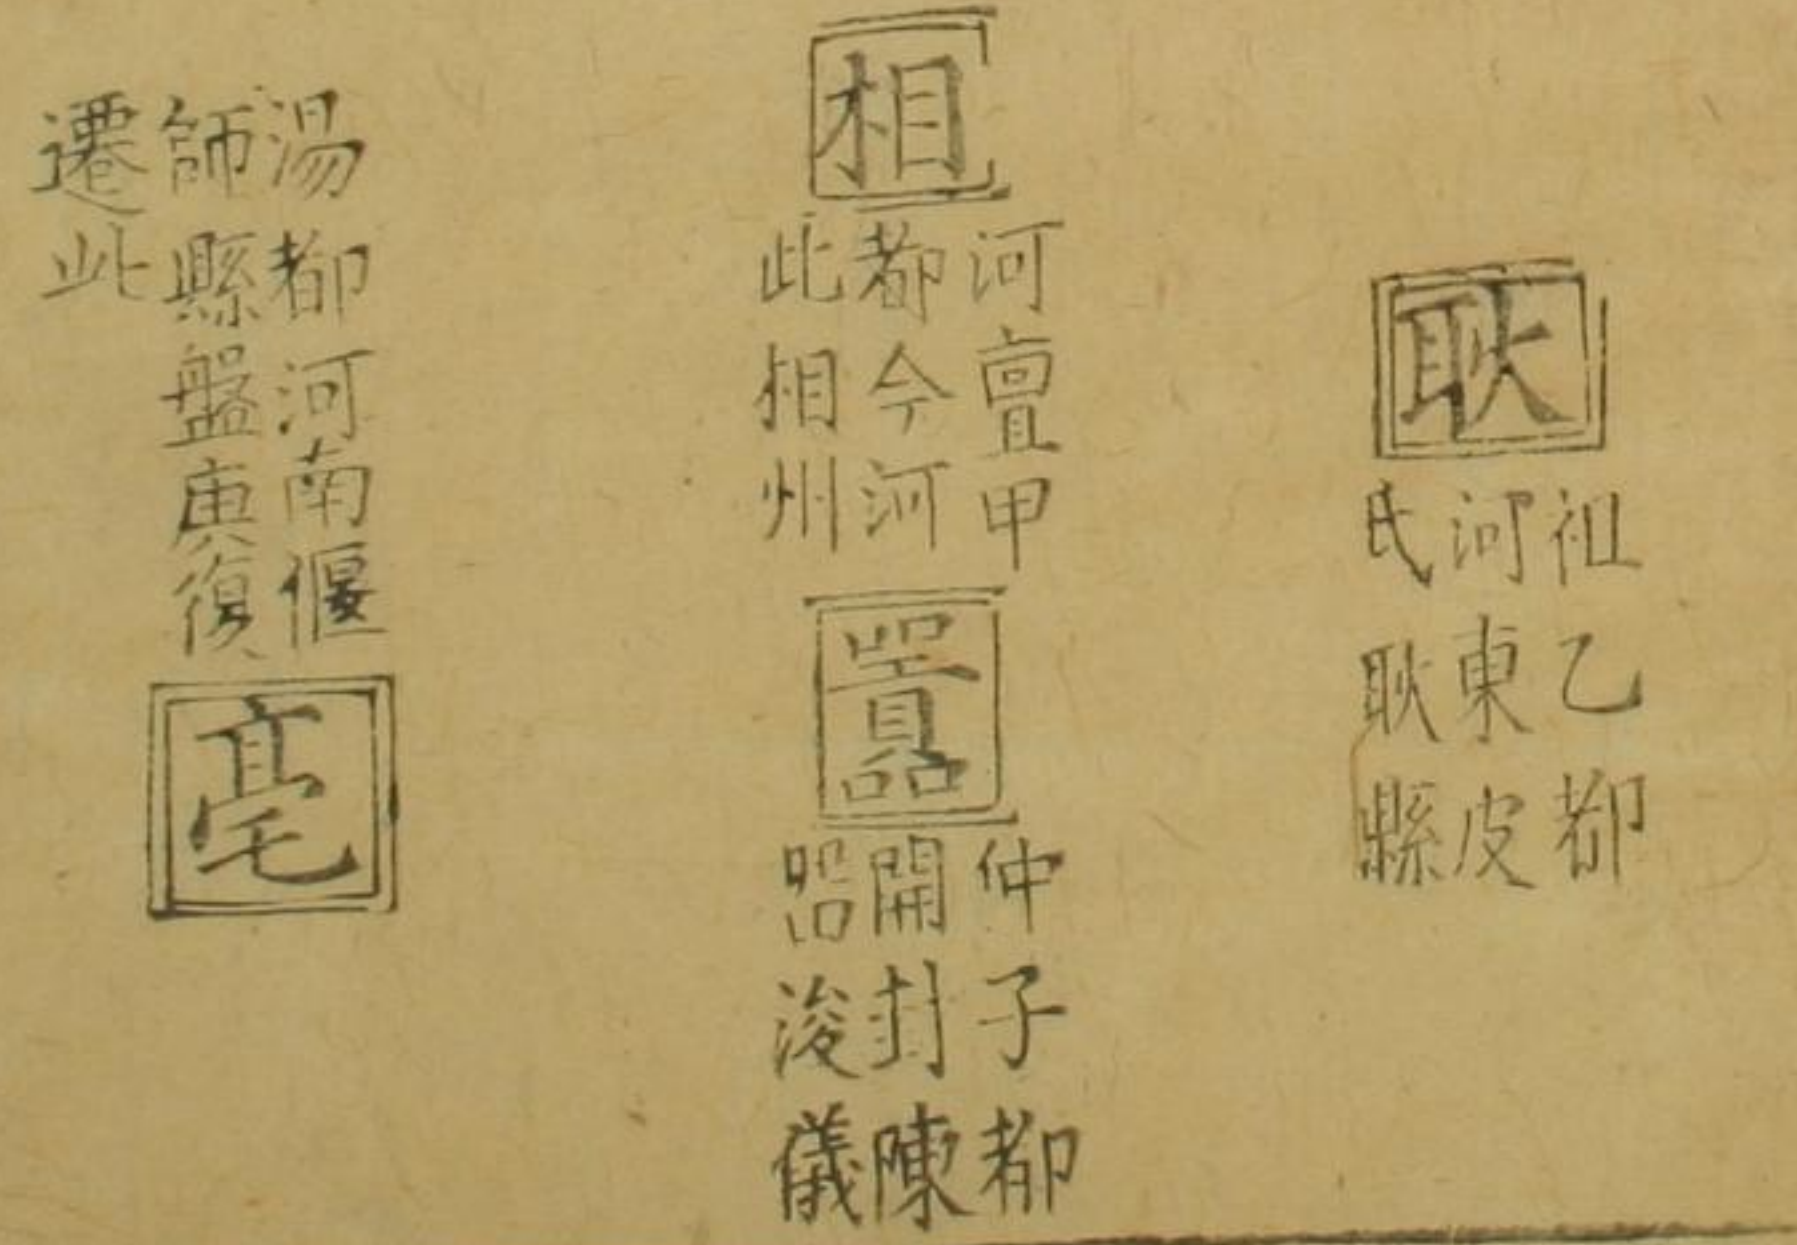 耿
祖乙都
河東皮
氏耿縣
相
河亶甲
都今河
此相州
囂
仲子都
開封陳
䛐浚儀
湯都河南偃
師縣盤庚復
遷此
亳